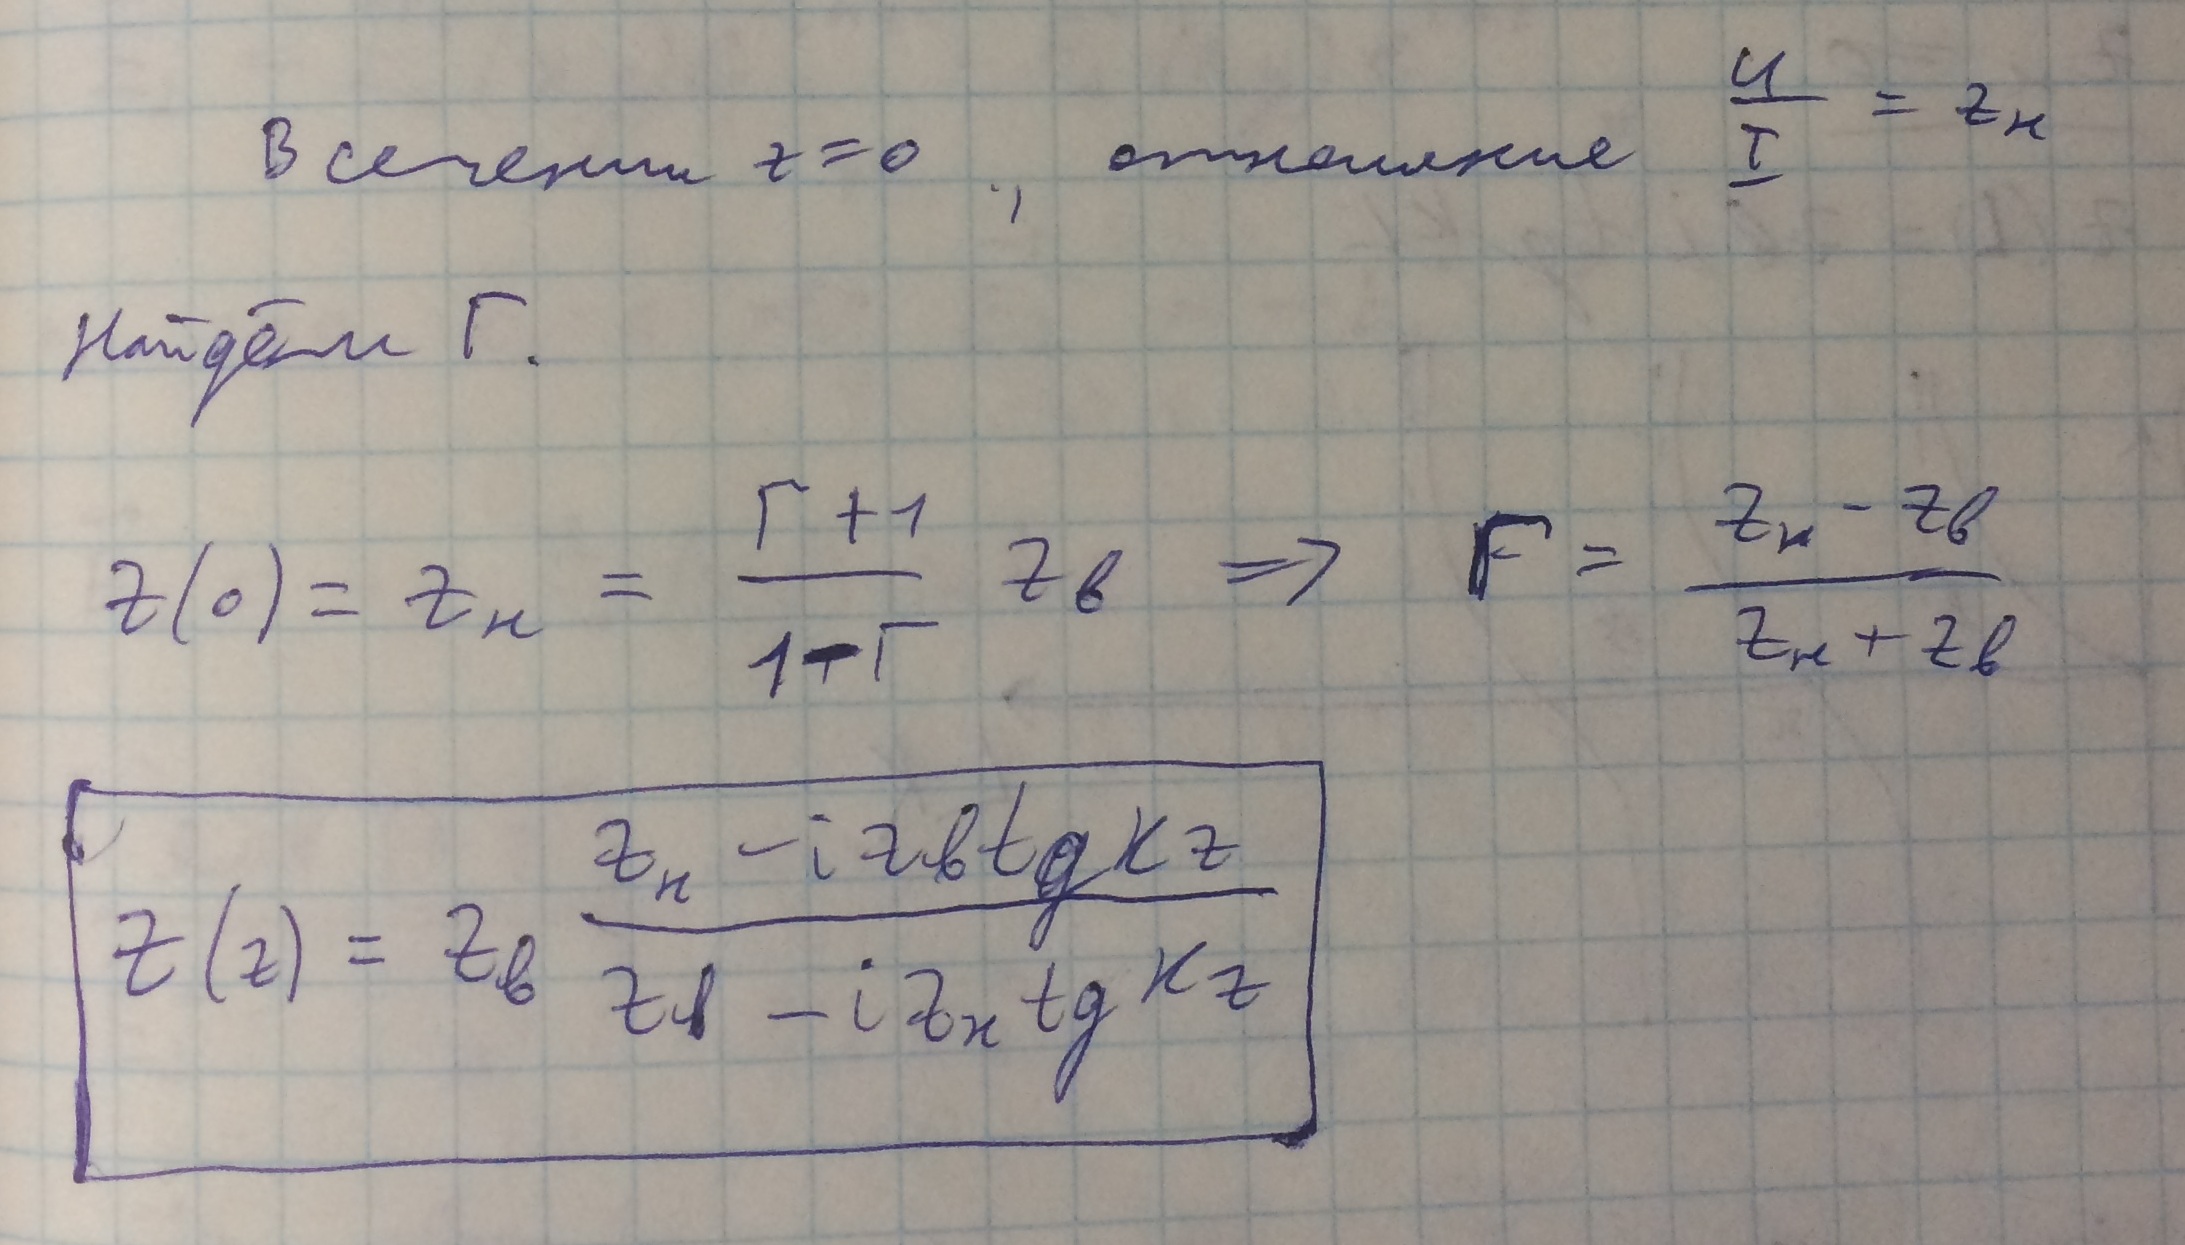 В сечении z=0, отношение U/I = Zн
Найдём Г.
Z(0) = Zн = (Г+1)/(1-Г) Zв => Г = (Zн - Zв)/(Zн + Zв)
Z(z) = Zв (Zн - i Zв tg kz)/(Zв - i Zн tg kz)